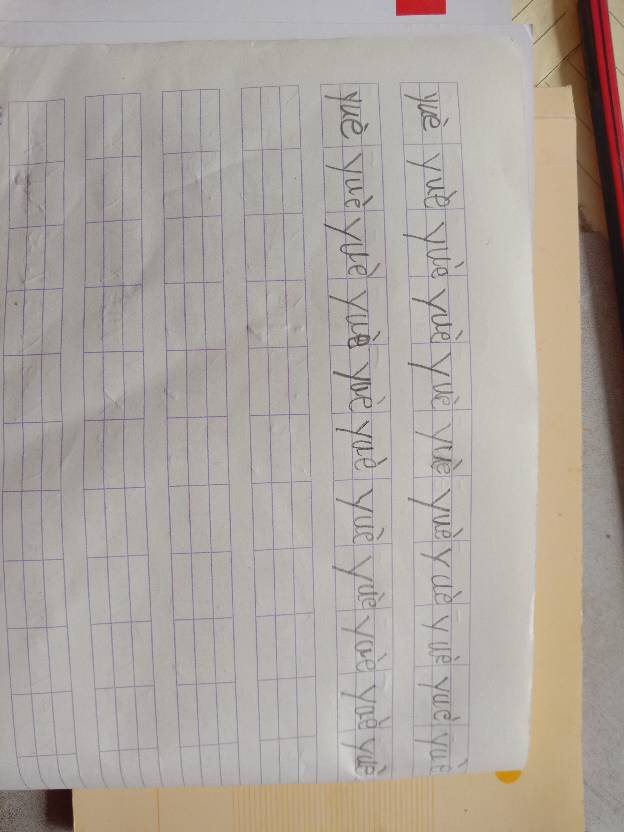 yuè yuè yuè yuè yuè yuè yuè yuè yuè yuè yuè
yuè yuè yuè yuè yuè yuè yuè yuè yuè yuè yuè